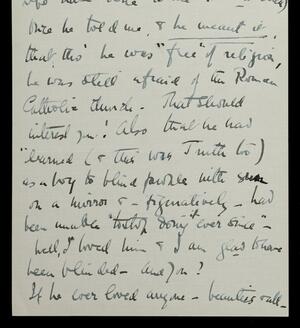 Once he told me, & he meant it,
that, tho' he was "free" of religion,
he was still afraid of the Roman
Catholic Church - That should
interest you! Also that he had
"learned (& this was Truth too)
as a boy to blind people with sun
on a mirror & - figuratively - had
been unable to stop doing it ever since" -
Well, I loved him & I am glad to have
been blinded - And you?
If he ever loved anyone - beauties all -